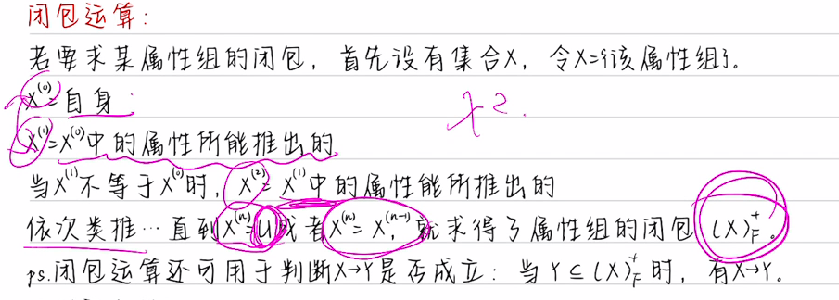 闭包运算：
若要求某属性组的闭包，首先设有集合X，令X={该属性组}。
X⁽⁰⁾=自身；
X².
X⁽¹⁾=X⁽⁰⁾中的属性所能推出的
当X⁽¹⁾不等于X⁽⁰⁾时，X⁽²⁾=X⁽¹⁾中的属性能所推出的
依次类推…直到X⁽ⁿ⁾=U或者X⁽ⁿ⁾=X⁽ⁿ⁻¹⁾，就求得了属性组的闭包(X)⁺F。
ps.闭包运算还可用于判断X→Y是否成立：当Y⊆(X)⁺F时，有X→Y。